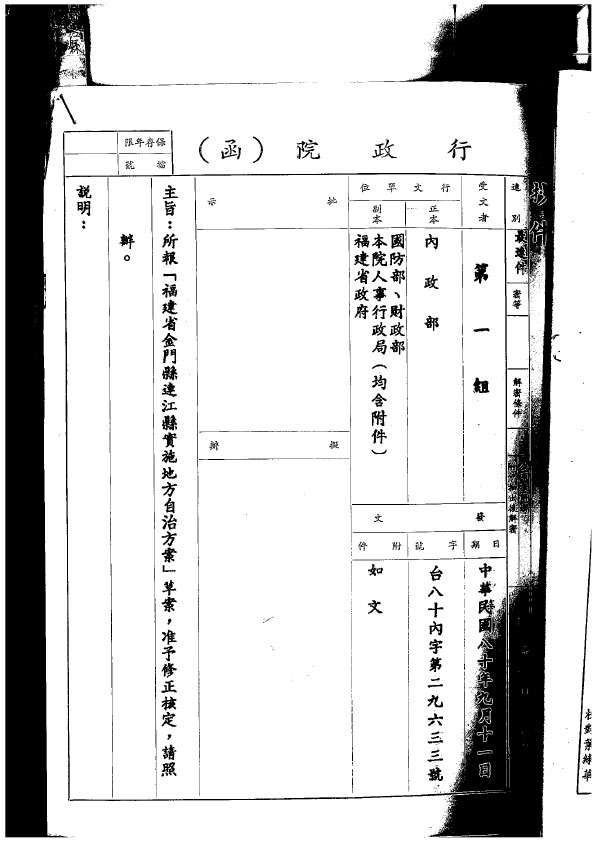 行政院（函）
保存年限
檔號
速別
最速件
密等
解密條件
受文者
第一組
行文單位
正本
內政部
副本
國防部、財政部
本院人事行政局（均含附件）
福建省政府
發文
日期
中華民國八十年九月十一日
字號
台八十內字第二九六三三號
附件
如文
批示
擬辦
主旨：所報「福建省金門縣連江縣實施地方自治方案」草案，准予修正核定，請照
辦。
說明：